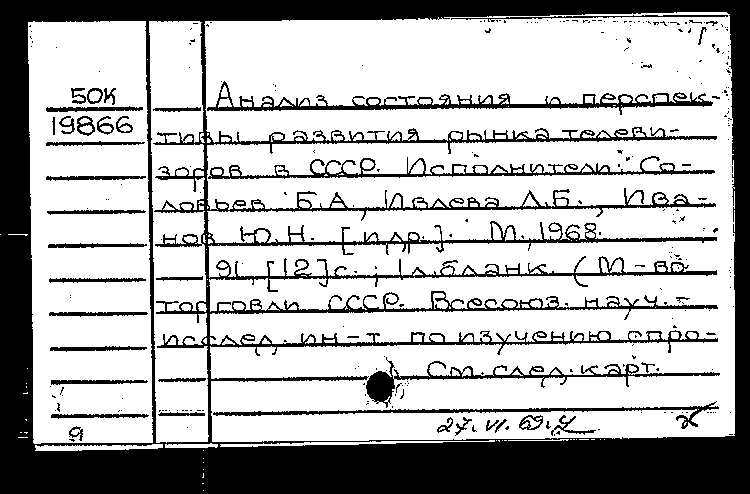 1
50К
19866
Анализ состояния и перспек-
тивы развития рынка телеви-
зоров в СССР. Исполнители: Со-
ловьев Б.А., Ивлева Л.Б., Ива-
нов Ю.Н. [и др.]. М., 1968.
91, [12]с.; 1 л. бланк. (М-во
торговли СССР. Всесоюз. науч.-
исслед. ин-т по изучению спро-
См. след. карт.
9
27.VI.69.